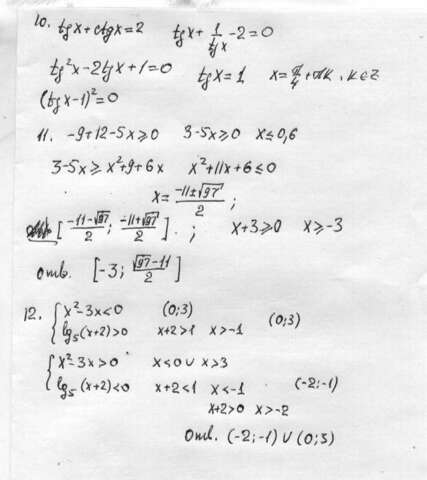 10. tgx+ctgx=2 tgx+1/tgx-2=0
tg²x-2tgx+1=0 tgx=1 x=π/4+πk, k∈Z
(tgx-1)²=0
11. -9+12-5x≥0 3-5x≥0 x≤0,6
3-5x≥x²+9+6x x²+11x+6≤0
x=(-11±√97)/2;
[(-11-√97)/2; (-11+√97)/2]. ; x+3≥0 x≥-3
Отв. [-3; (√97-11)/2]
12. { x²-3x<0 (0;3)
lg₅(x+2)>0 x+2>1 x>-1 (0;3)
{ x²-3x>0 x<0 ∪ x>3
lg₅(x+2)<0 x+2<1 x<-1 (-2;-1)
x+2>0 x>-2
Отв. (-2;-1) ∪ (0;3)